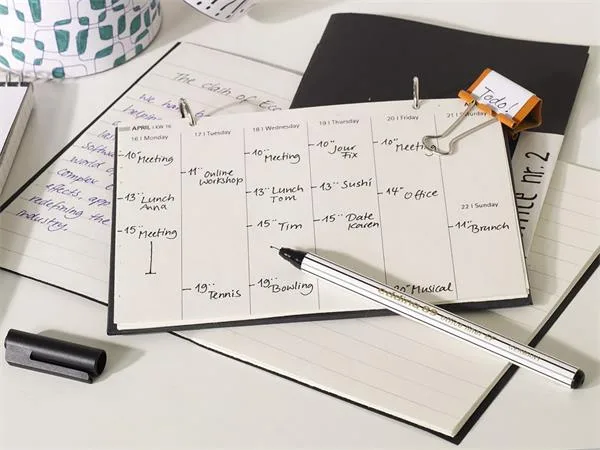 The clash of
We
helpin
Softwar
world
complex
effects, app
redefining the
industry.
APRIL | KW 16
16 | Monday
10°° Meeting
13°° Lunch
Anna
15°° Meeting
17 | Tuesday
11°° Online
Workshop
19°° Tennis
18 | Wednesday
10°° Meeting
13°° Lunch
Tom
15°° Tim
19°° Bowling
19 | Thursday
10°° Jour
Fix
13°° Sushi
15°° Date
Karen
20 | Friday
10°° Meeting
14°° Office
20°° Musical
21 | Saturday
22 | Sunday
11°° Brunch
Todo!
nr. 2
edding